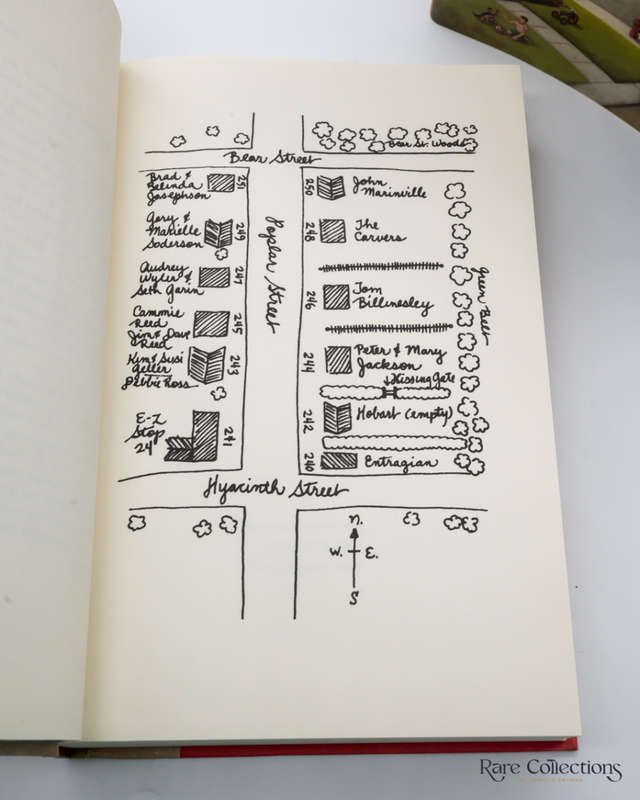 Bear St. Woods
Bear Street
Brad &
Belinda
Josephson
251
Gary &
Marielle
Soderson
249
Audrey
Wyler &
Seth Garin
247
Cammie
Reed
Jim & Dave
Reed
245
Kim & Susi
Geller
Debbie Ross
243
E-Z
Stop
24
241
Poplar Street
250
John
Marinville
248
The
Carvers
246
Tom
Billinesley
244
Peter & Mary
Jackson
Kissing Gate
242
Hobart (empty)
240
Entragian
Green Belt
Hyacinth Street
N.
W. E.
S
Rare Collections